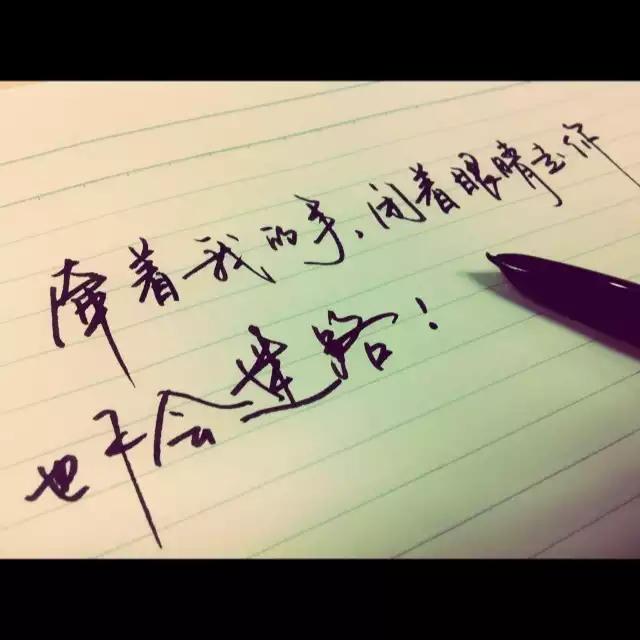 牵着我的手、闭着眼睛走你
也不会迷路!